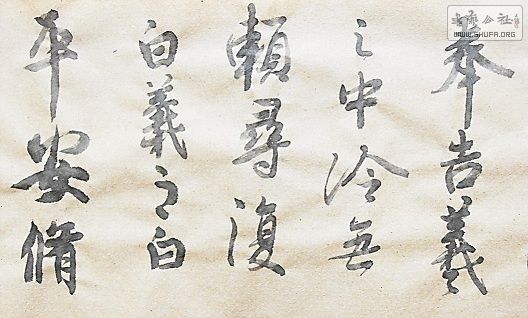 奉告羲
之中冷無
賴尋復
白羲之白
平安脩
書藝公社
WWW.SHUFA.ORG